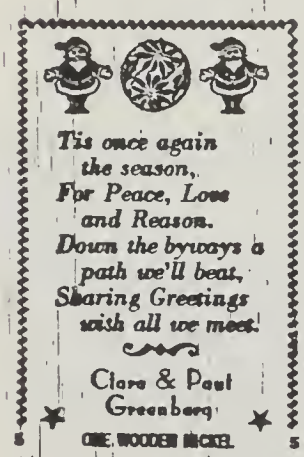 Tis once again
the season,
For Peace, Love
and Reason.
Down the byways a
path we'll beat,
Sharing Greetings
wish all we meet!
Clara & Paul
Greenberg
5 ONE WOODEN NICKEL 5